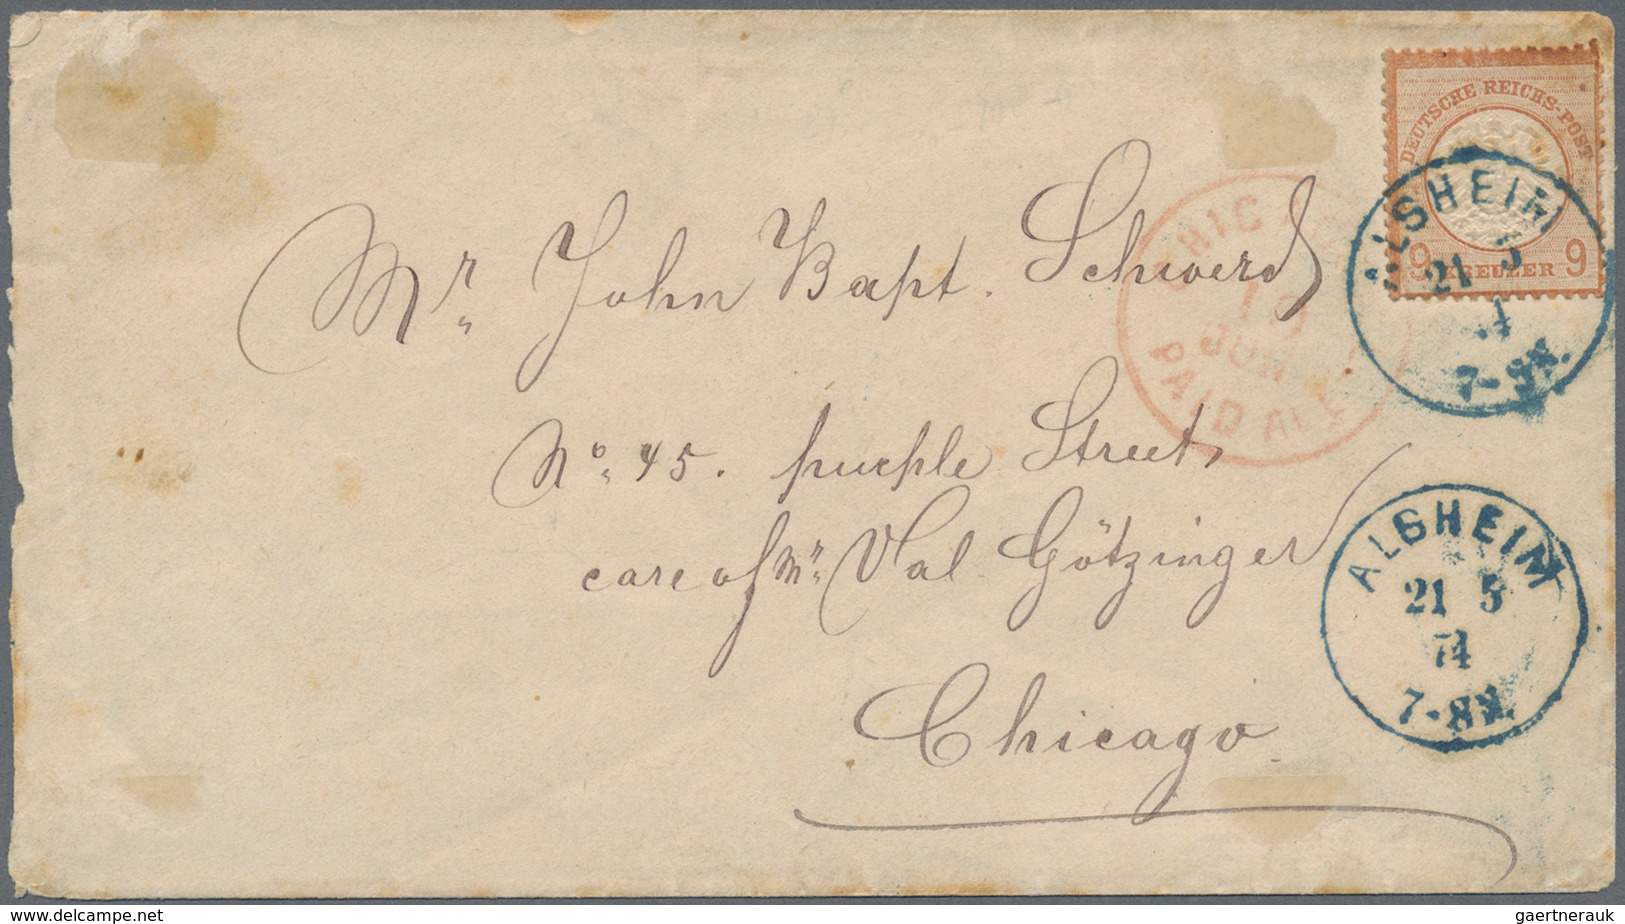 DEUTSCHE REICHS-POST
9 KREUZER 9
ALSHEIM
21 5
74
7-8N.
CHICAGO
JUN
PAID ALL
Mr. John Bapt. Schwerd
No. 45. purple Street,
care of Mr. Val Götzinger
Chicago.
ALSHEIM
21 5
74
7-8N.
www.delcampe.net
gaertnerauk